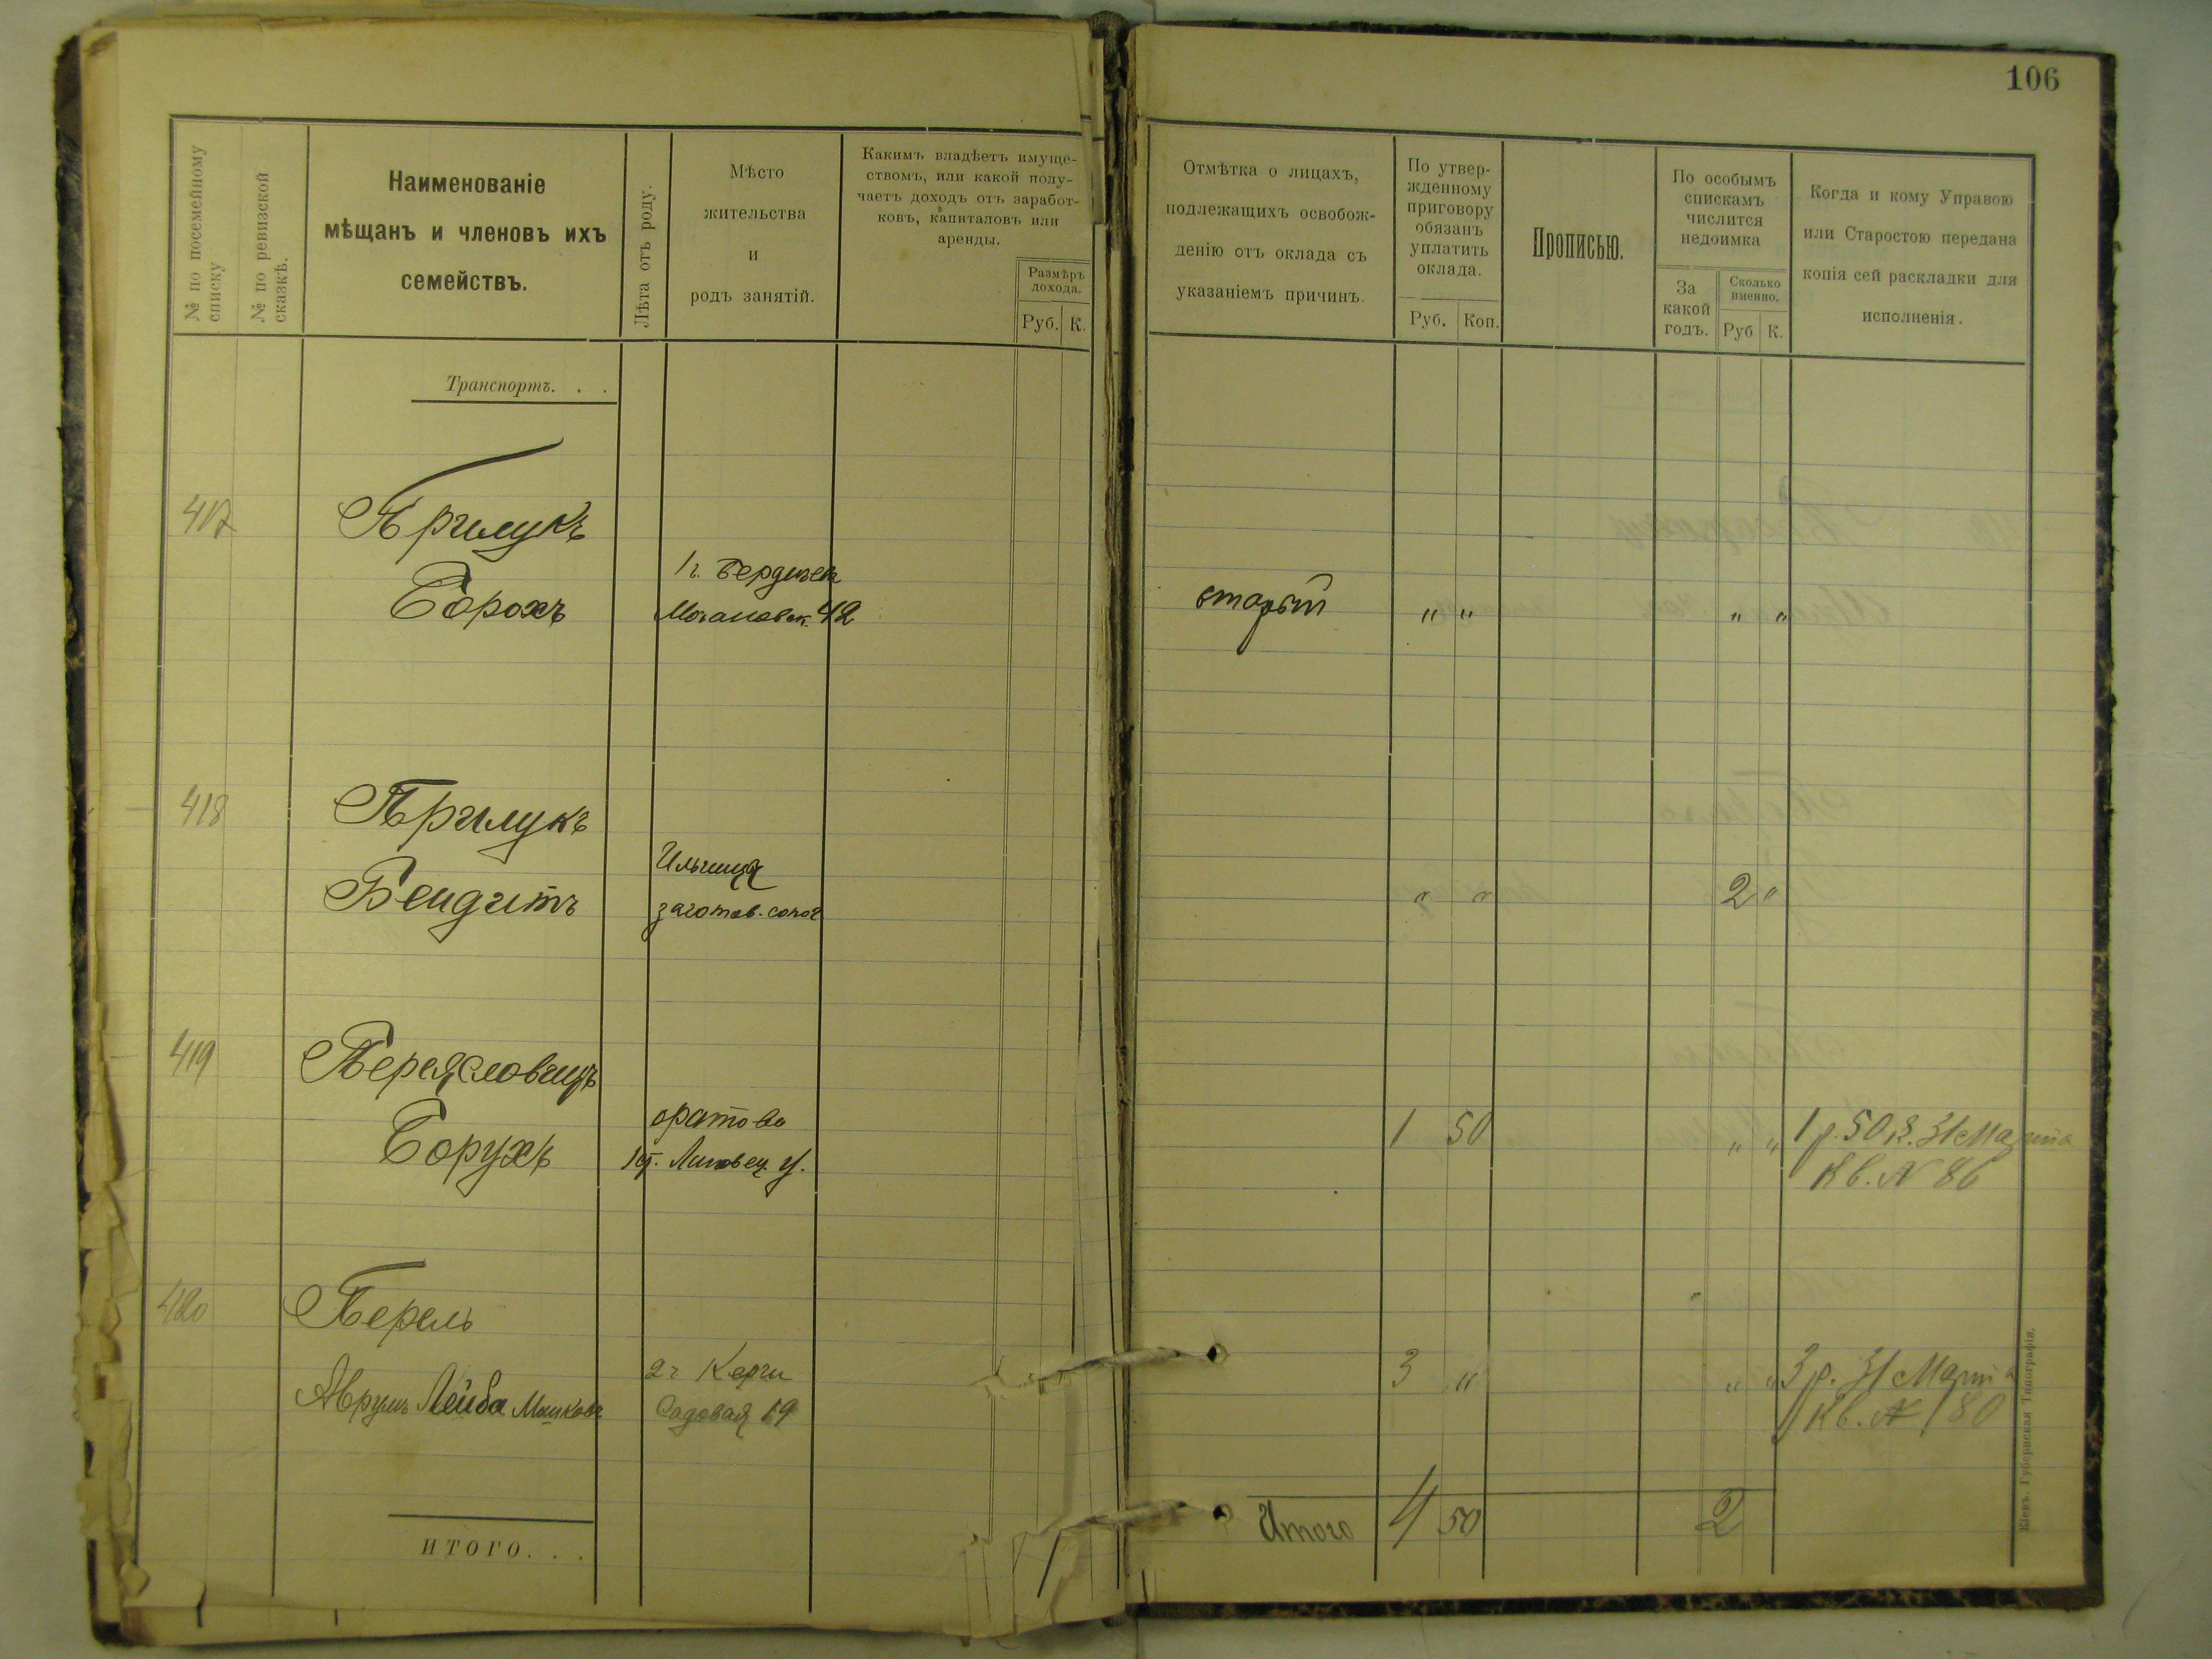 106
№ по посемейному списку
№ по ревизской сказкѣ.
Наименованіе
мѣщанъ и членовъ ихъ
семействъ.
Лѣта отъ роду.
Мѣсто
жительства
и
родъ занятій.
Какимъ владѣетъ имуще-
ствомъ, или какой полу-
чаетъ доходъ отъ заработ-
ковъ, капиталовъ или
аренды.
Размѣръ
дохода.
Руб. К.
Отмѣтка о лицахъ,
подлежащихъ освобож-
денію отъ оклада съ
указаніемъ причинъ.
По утвер-
жденному
приговору
обязанъ
уплатить
оклада.
Руб. Коп.
Прописью.
По особымъ
спискамъ
числится
недоимка
За
какой
годъ.
Сколько
именно.
Руб К.
Когда и кому Управою
или Старостою передана
копія сей раскладки для
исполненія.
Транспортъ. . .
417 Прилукъ
1г. Бердичев
Борохъ Махановск. 42 старый " " " "
418 Прилукъ
Ильинцы
Бендитъ заготов. сапог " " 2 "
419 Переясловчицъ
Оратово
Борухъ Липовец. у. 1 50 " " 1 р. 50 к. 31 Марта
Кв. № 86
420 Перель
2г Керчи 3 " " " 3 р. 31 Марта
Аврумъ Лейба Мошковъ Садовая 19 Кв. № 80
Итого 4 50 2
ИТОГО. . .
Кіевъ. Губернская Типографія.